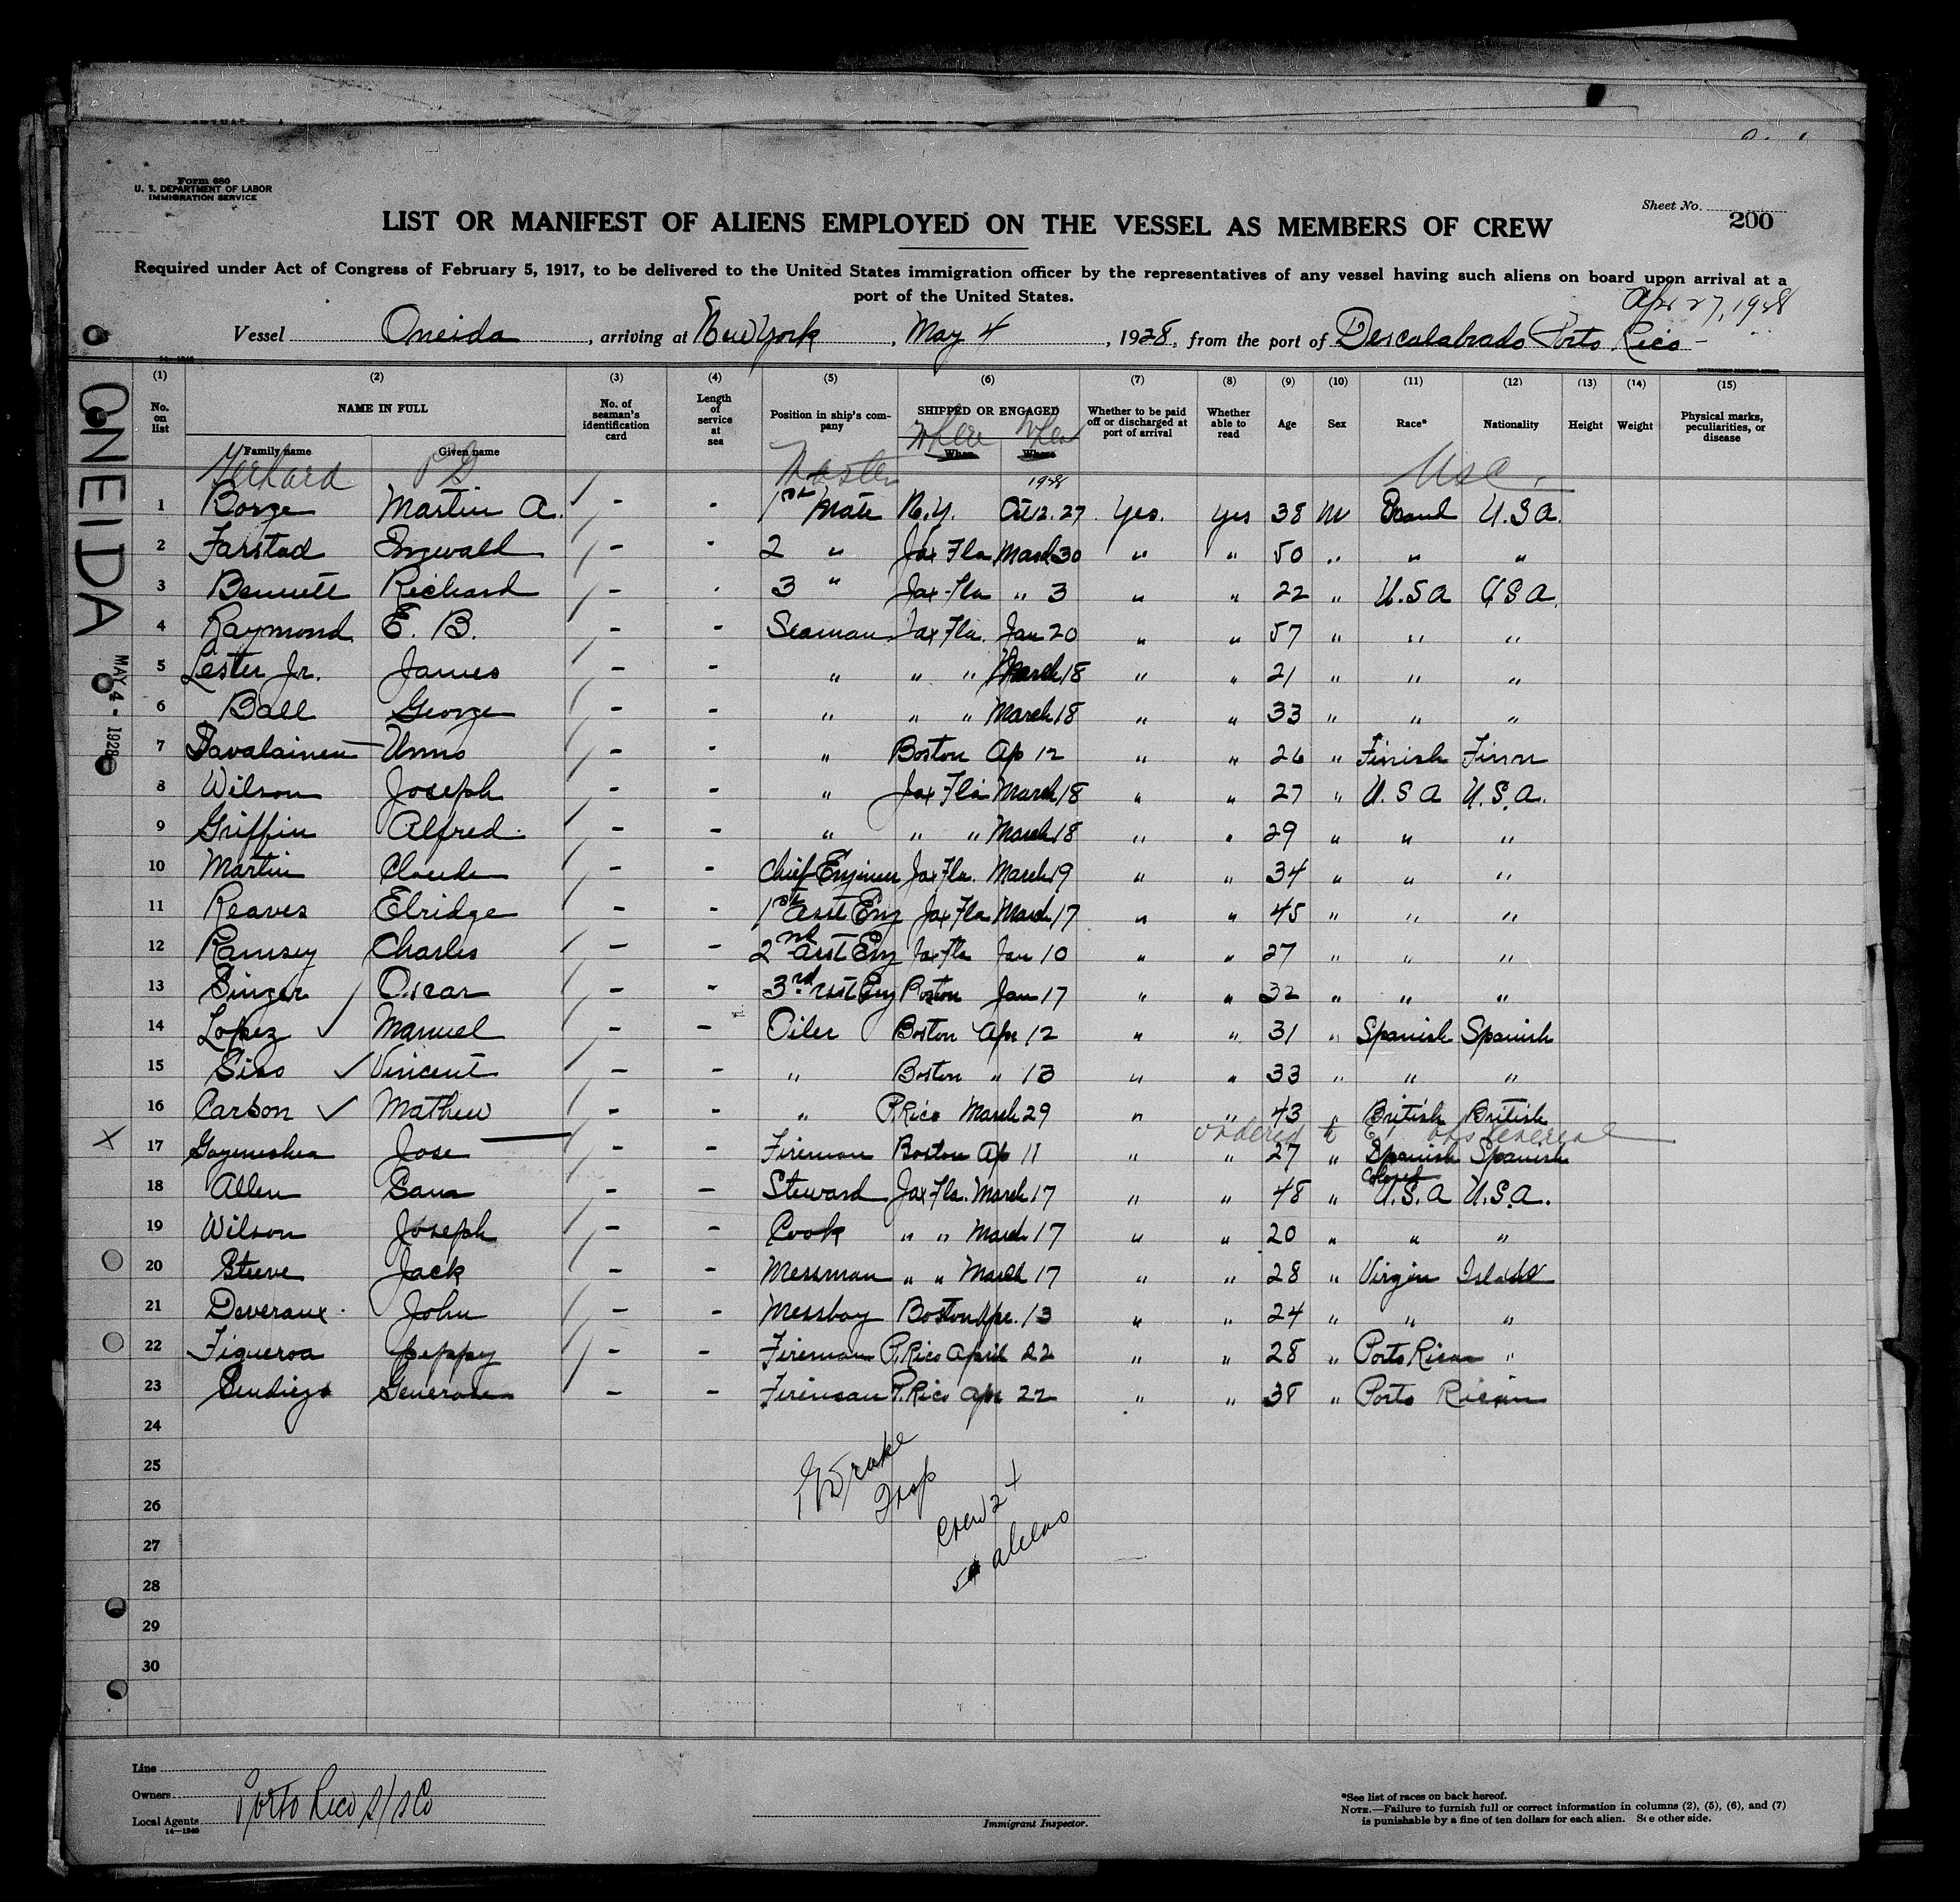 Form 680
U. S. DEPARTMENT OF LABOR
IMMIGRATION SERVICE
Sheet No. 200
LIST OR MANIFEST OF ALIENS EMPLOYED ON THE VESSEL AS MEMBERS OF CREW
Required under Act of Congress of February 5, 1917, to be delivered to the United States immigration officer by the representatives of any vessel having such aliens on board upon arrival at a
port of the United States.
Apr 27, 1928
Vessel Oneida, arriving at New York, May 4, 1928, from the port of Descalabrado Porto Rico -
ONEIDA
MAY 4 - 1928
(1) (2) (3) (4) (5) (6) (7) (8) (9) (10) (11) (12) (13) (14) (15)
No. on list NAME IN FULL No. of seaman's identification card Length of service at sea Position in ship's company SHIPPED OR ENGAGED Whether to be paid off or discharged at port of arrival Whether able to read Age Sex Race* Nationality Height Weight Physical marks, peculiarities, or disease
Family name Given name Where When
Gerhard P D Master USA
1928
1 Borge Martin A. - - 1st Mate N.Y. Oct 12. 27 Yes. Yes 38 M U.S.A.
2 Farstad Ingwald - - 2 " Jax Fla March 30 " " 50 " " "
3 Bennett Richard - - 3 " Jax Fla " 3 " " 22 " U.S A U S A.
4 Raymond E. B. - - Seaman Jax Fla. Jan 20 " " 57 " " "
5 Lester Jr. James - - " " " March 18 " " 21 " " "
6 Ball George - - " " " March 18 " " 33 " " "
7 Unno - - " Boston Ap 12 " " 26 " Finish Finn
8 Wilson Joseph - - " Jax Fla March 18 " " 27 " U. S A U. S. A.
9 Griffin Alfred - - " " " March 18 " " 29 " " "
10 Martin Claude - - Chief Engineer Jax Fla. March 19 " " 34 " " "
11 Reaves Elridge - - 1st asst Eng Jax Fla March 17 " " 45 " " "
12 Ramsey Charles - - 2nd asst Eng Jax Fla Jan 10 " " 27 " " "
13 Singer Oscar - - 3rd asst Eng Boston Jan 17 " " 32 " " "
14 Lopez ✓ Manuel - - Oiler Boston Apr 12 " " 31 " Spanish Spanish
15 Siso ✓ Vincent - - " Boston " 13 " " 33 " " "
16 Carson ✓ Mathew - - " P. Rico March 29 " " 43 " British British
ordered to E.I. obs venereal
X 17 Goyeneshea Jose Fireman Boston Ap 11 " " 27 " Spanish Spanish
Colored
18 Allen Sam - - Steward Jax Fla. March 17 " " 48 " U.S. A U.S.A.
19 Wilson Joseph - - Cook " " March 17 " " 20 " " "
20 Steeve Jack - - Messman " " March 17 " " 28 " Virgin Islands
21 Deveraux John - - Messboy Boston Apr. 13 " " 24 " " "
22 Figueroa Peppy - - Fireman P. Rico April 22 " " 28 " Porto Rican "
23 - - Fireman P. Rico Apr 22 " " 38 " Porto Rican
24
25
26
27
28
29
30
Drake
Insp
Crew 24
5 aliens
Line
Owners Porto Rico S/S Co
Local Agents
14—1240
Immigrant Inspector.
*See list of races on back hereof.
NOTE.—Failure to furnish full or correct information in columns (2), (5), (6), and (7)
is punishable by a fine of ten dollars for each alien. See other side.